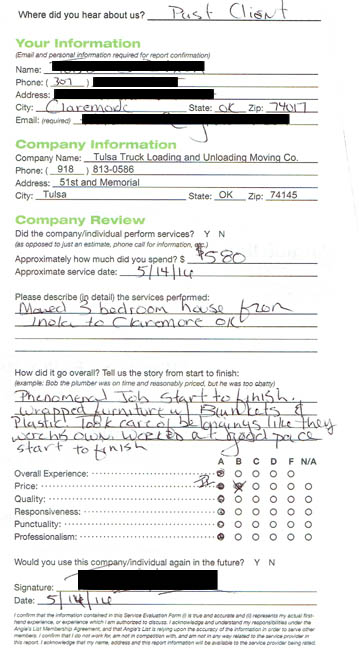 Where did you hear about us? Past Client
Your Information
(Email and personal information required for report confirmation)
Name:
Phone: ( 307 )
Address:
City: Claremore State: OK Zip: 74017
Email: (required)
Company Information
Company Name: Tulsa Truck Loading and Unloading Moving Co.
Phone: ( 918 ) 813-0586
Address: 51st and Memorial
City: Tulsa State: OK Zip: 74145
Company Review
Did the company/individual perform services? Y N
(as opposed to just an estimate, phone call for information, etc.)
Approximately how much did you spend? $ $580
Approximate service date: 5/14/14
Please describe (in detail) the services performed:
Moved 3 bedroom house from
Inola to Claremore OK
How did it go overall? Tell us the story from start to finish:
(example: Bob the plumber was on time and reasonably priced, but he was too chatty)
Phenomenal Job start to finish.
wrapped furniture w/ Blankets &
Plastic. Took care of belongings like they
were his own. Worked at good pace
start to finish
A B C D F N/A
Overall Experience:
Price:
Quality:
Responsiveness:
Punctuality:
Professionalism:
Would you use this company/individual again in the future? Y N
Signature:
Date: 5/14/14
I confirm that the information contained in this Service Evaluation Form (i) is true and accurate and (ii) represents my actual first-
hand experience, or experience which I am authorized to discuss. I acknowledge and understand my responsibilities under the
Angie's List Membership Agreement, and that Angie's List is relying upon the accuracy of the information in order to serve other
members. I confirm that I do not work for, am not in competition with, and am not in any way related to the service provider in
this report. I acknowledge that my name, address and this report information will be available to the service provider being rated.